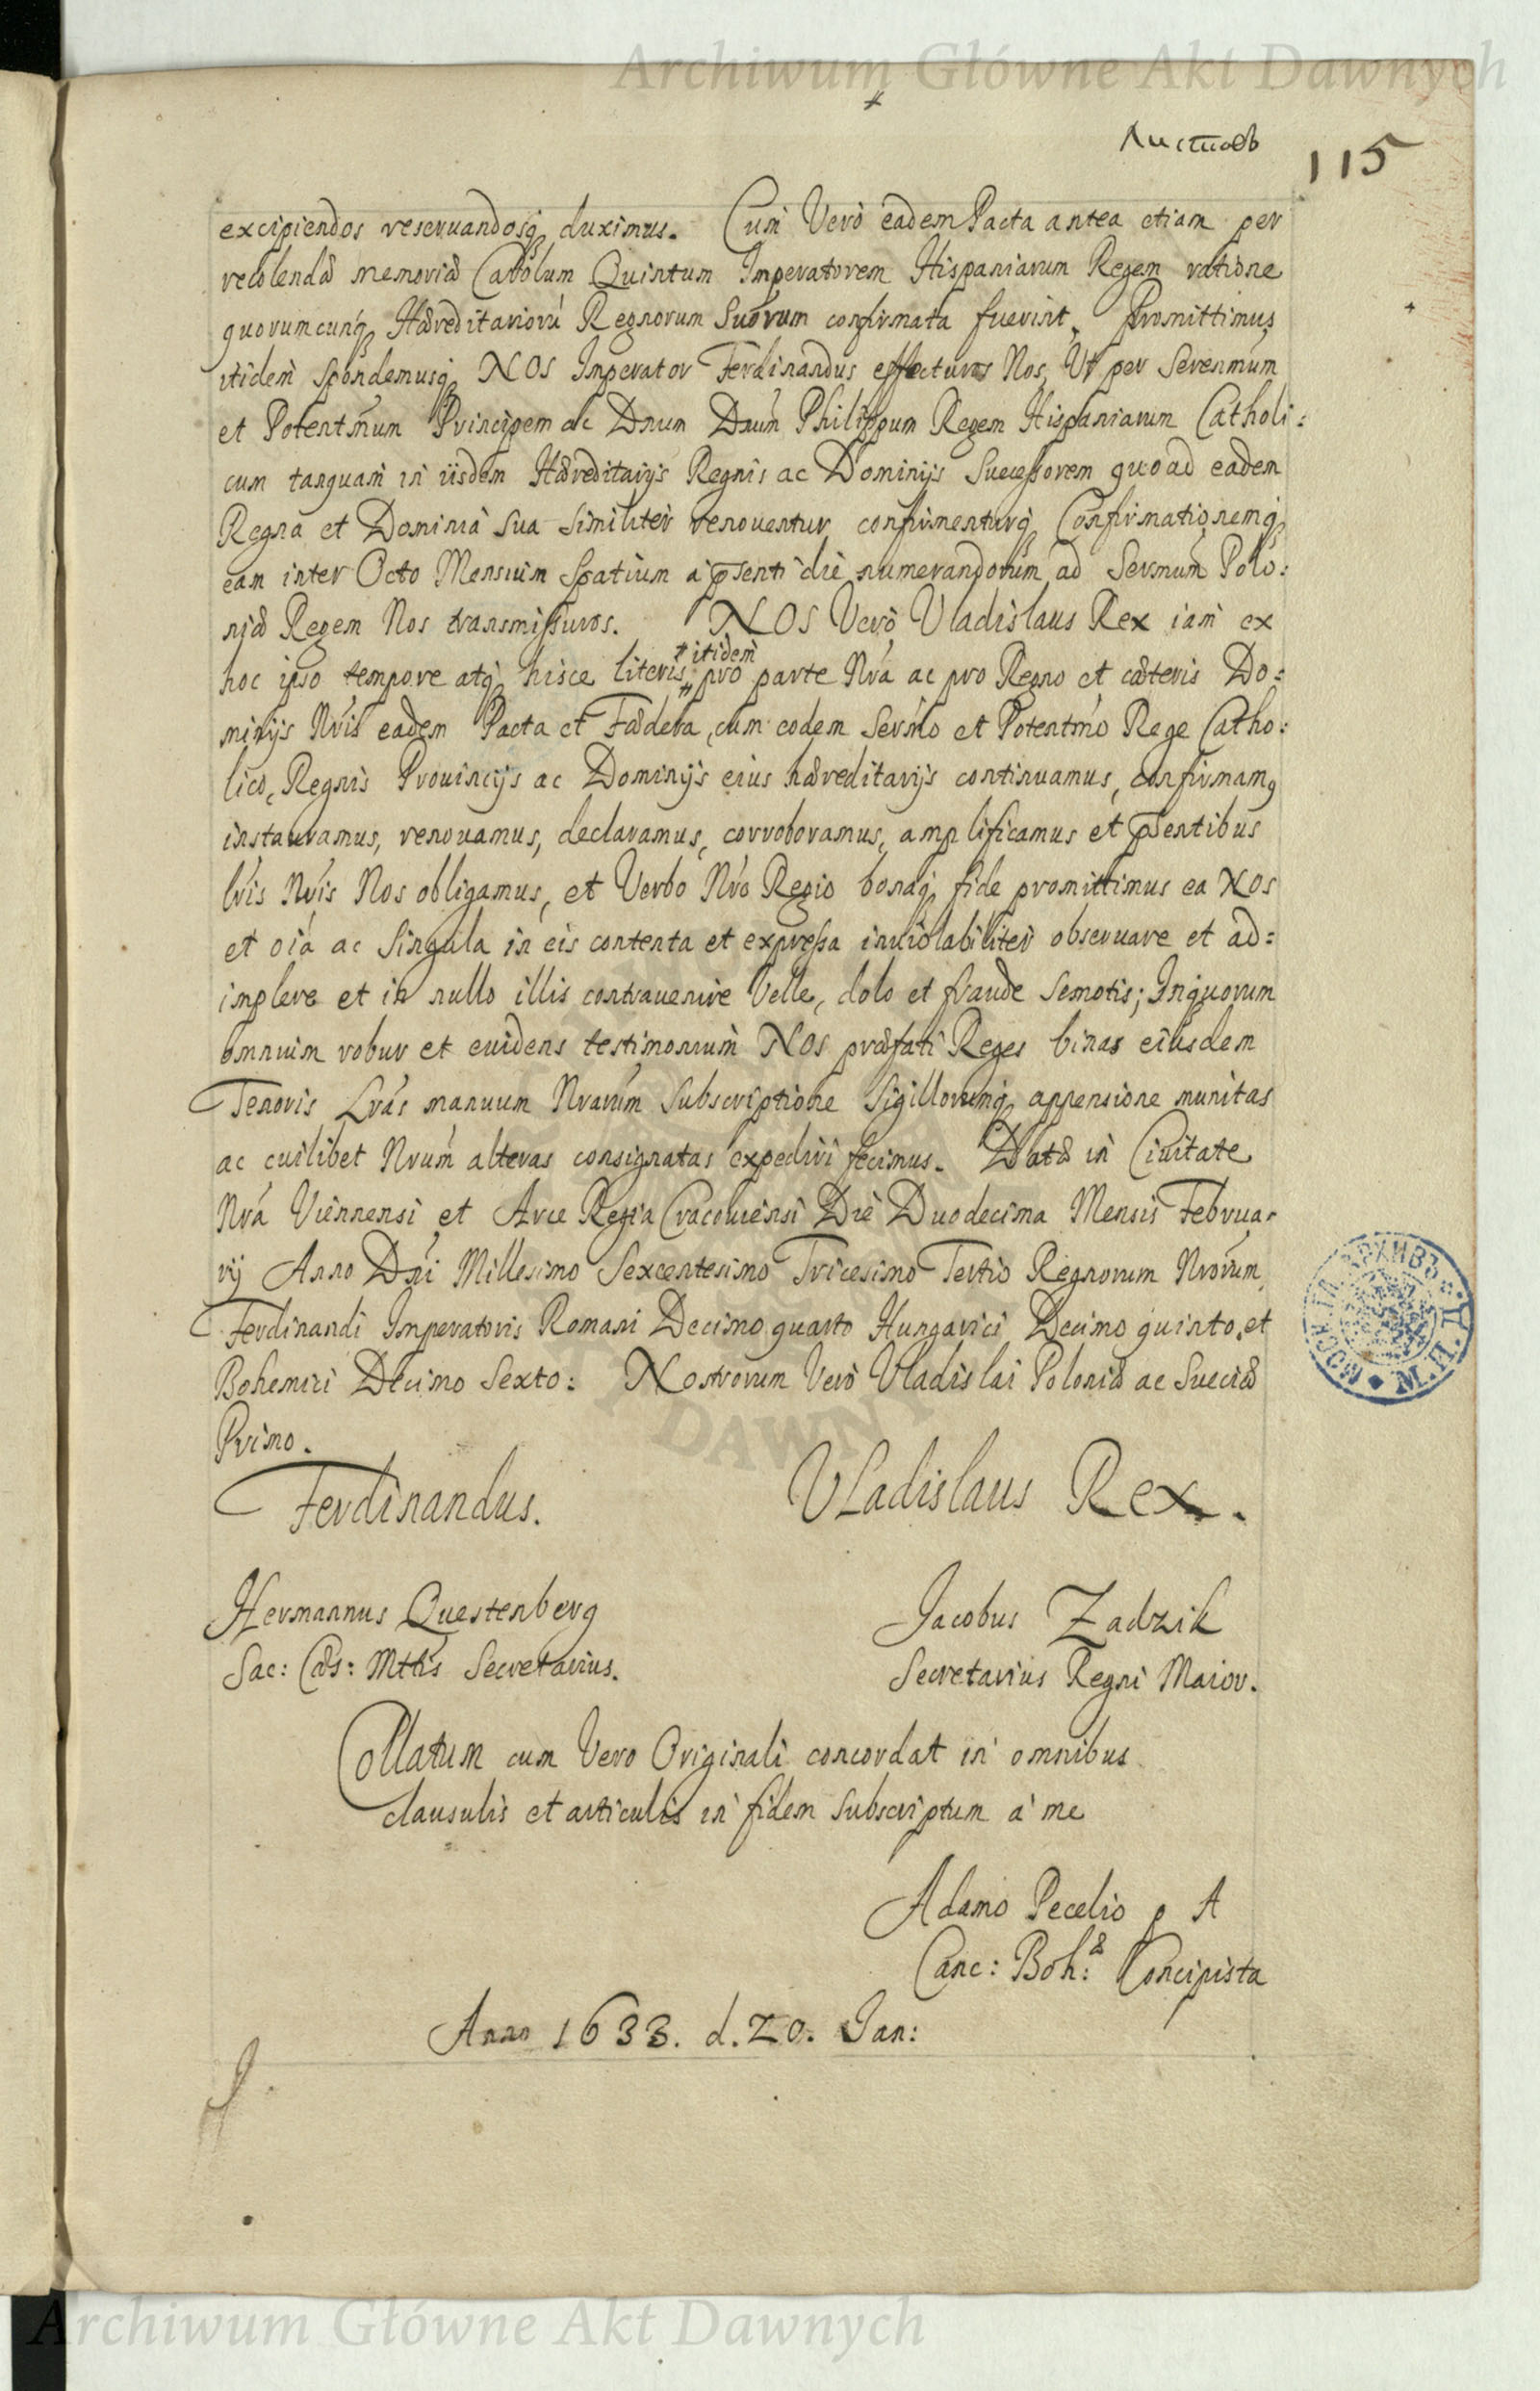 Archiwum Główne Akt Dawnych
Листовъ
115
excipiendos reseruandosq, duximus. Cum Verò eadem Pacta antea etiam per
recolendæ memoriæ Carolum Quintum Imperatorem Hispaniarum Regem ratione
quorumcunq, Hæreditariorũ Regnorum Suorum confirmata fuerint, Promittimus
itidem Spondemusq, NOS Imperator Ferdinandus effecturos Nos, Ut per Serenmum
et Potentmum Principem ac Dnum Dnum Philippum Regem Hispaniarum Catholi:
cum tanquam in iisdem Hæreditarijs Regnis ac Dominijs Successorem quoad eadem
Regna et Dominia Sua Similiter renouentur confirmenturq, Confirmationemq,
eam inter Octo Mensium Spatium a pnti die numerandorum ad Sermum Polo:
niæ Regem Nos transmissuros. NOS Verò Vladislaus Rex iam ex
hoc ipso tempore atq, hisce literis itidem pro parte Nra ac pro Regno et cæteris Do:
minijs Nris eadem Pacta et Fædera, cum eodem Sermo et Potentmo Rege Catho:
lico, Regnis Prouincijs ac Dominijs eius hæreditarijs continuamus, confirmamꝰ
instauramus, renouamus, declaramus, corroboramus, amplificamus et pntibus
lris Nris Nos obligamus, et Verbo Nro Regio bonaq, fide promittimus ea NOS
et oia ac Singula in eis contenta et expressa inuiolabiliter obseruare et ad:
implere et in nullo illis contrauenire Velle, dolo et fraude Semotis; Inquorum
omnium robur et euidens testimonium NOS præfati Reges binas eiusdem
Tenoris Lras manuum Nrarum Subscriptione Sigillorumq, appensione munitas
ac cuilibet Nrum alteras consignatas expediri fecimus. Datæ in Ciuitate
Nra Viennensi et Arce Regia Cracouiensi Die Duodecima Mensis Februa-
rij Anno Dni Millesimo Sexcentesimo Tricesimo Tertio Regnorum Nrorum
Ferdinandi Imperatoris Romani Decimo quarto Hungarici Decimo quinto, et
Bohemici Decimo Sexto: Nostrorum Verò Vladislai Poloniæ ac Sueciæ
Primo.
Ferdinandus. Vladislaus Rex.
Hermannus Questenberg Jacobus Zadzik
Sac: Cæs: Mttis Secretarius. Secretarius Regni Maior.
Collatum cum Vero Originali concordat in omnibus
clausulis et articulis in fidem Subscriptum à me
Adamo Pecelio p A
Canc: Boh:æ Concipista
Anno 1633. d. 20. Jan:
Archiwum Główne Akt Dawnych